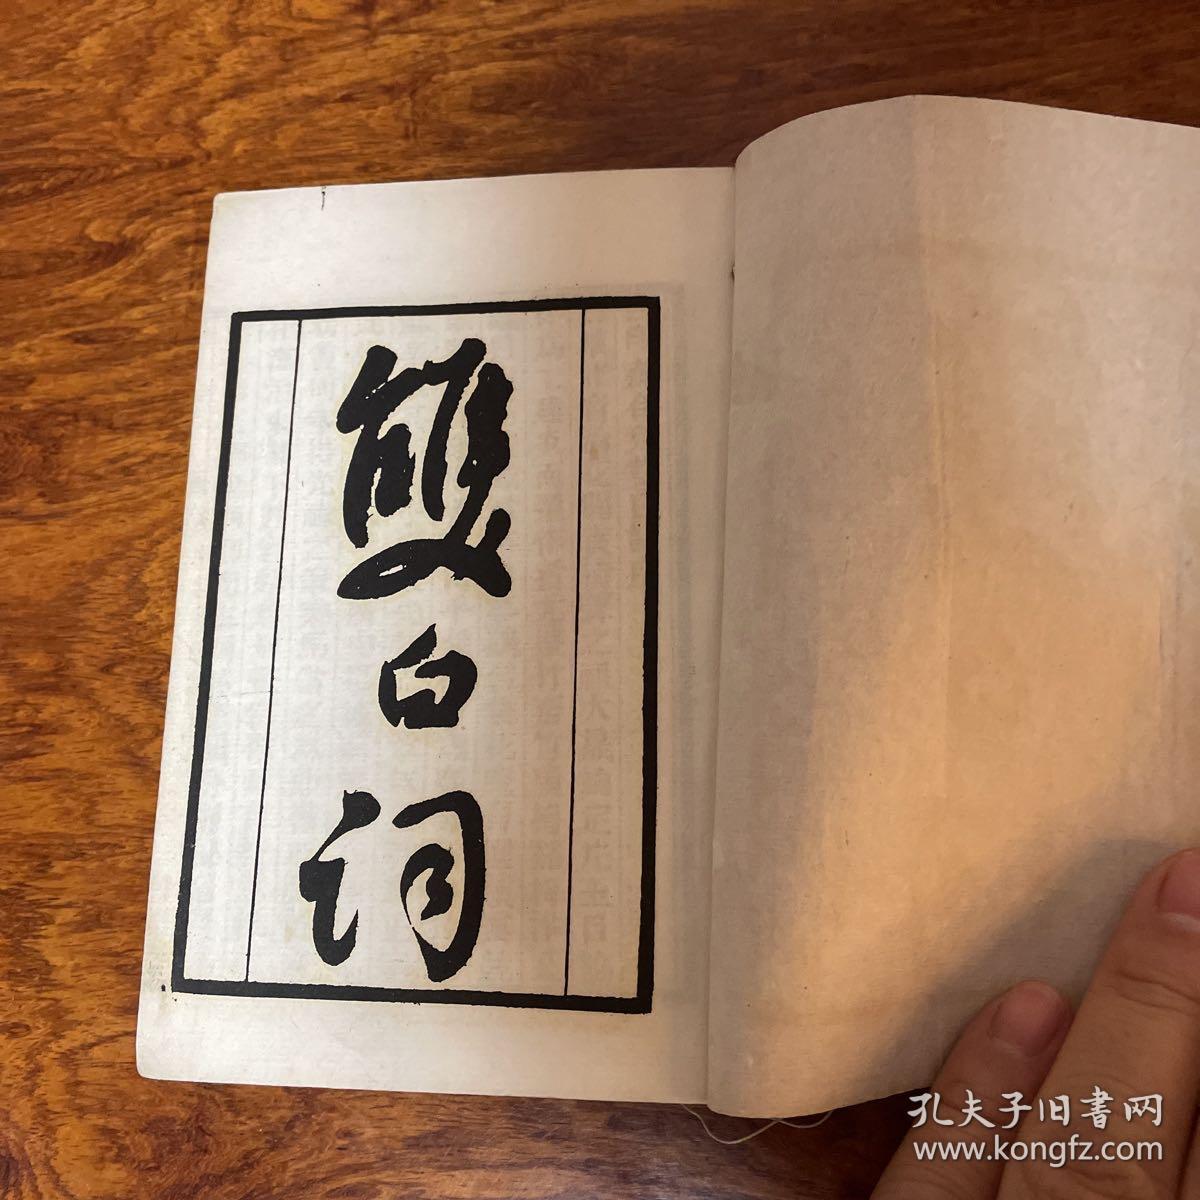 雙白詞
孔夫子旧書网
www.kongfz.com